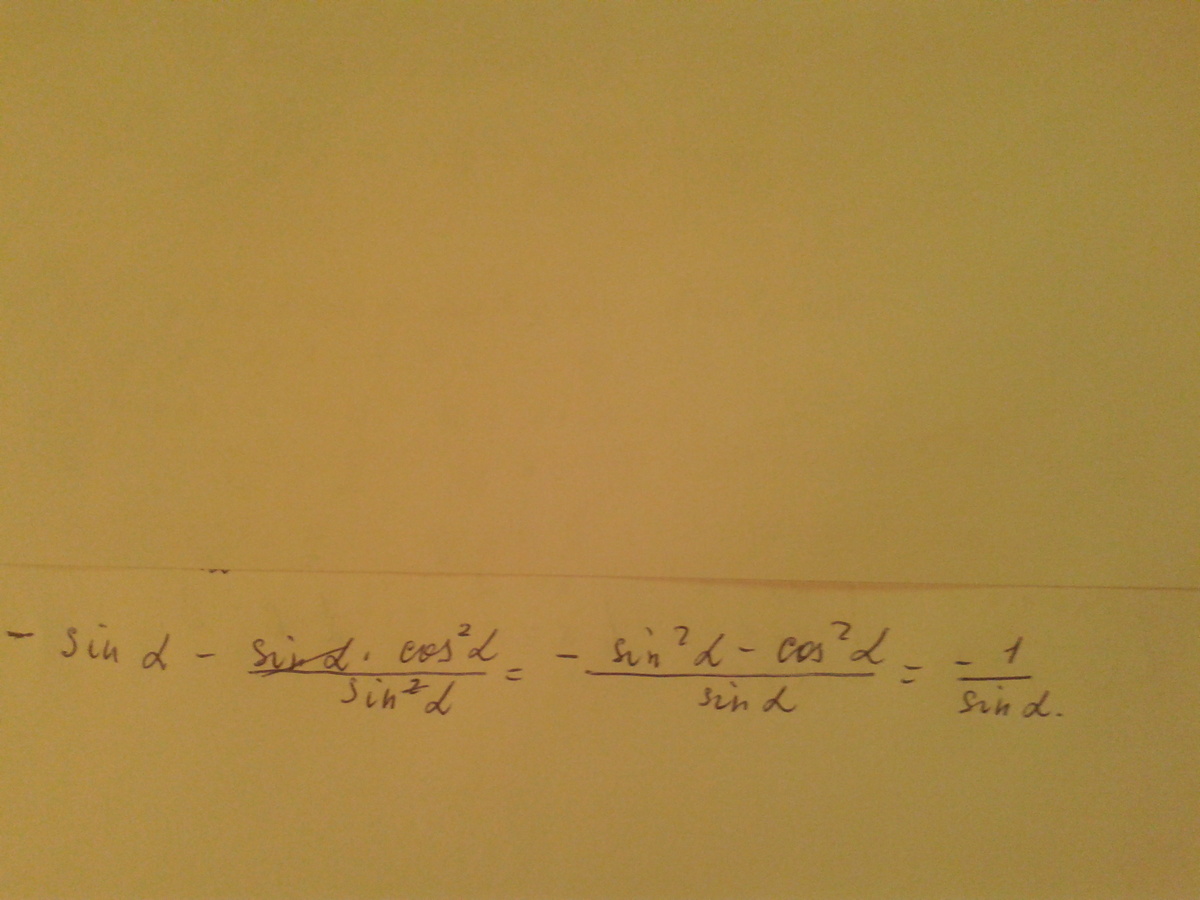 - sin α - sin α · cos²α / sin²α = - sin²α - cos²α / sin α = - 1 / sin α.